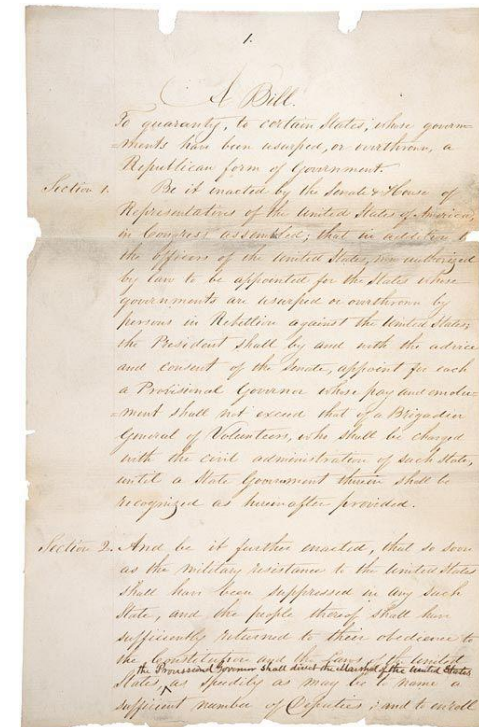 1.
A Bill.
To guaranty, to certain States, whose govern-
-ments have been usurped, or overthrown, a
Republican form of Government.
Section 1. Be it enacted by the Senate & House of
Representatives of the United States of America,
in Congress assembled, that in addition to
the officers of the United States, now authorized
by law to be appointed for the States whose
governments are usurped or overthrown by
persons in Rebellion against the United States,
the President shall by and with the advice
and consent of the Senate, appoint for each
a Provisional Governor whose pay and emolu-
-ment shall not exceed that of a Brigadier
General of Volunteers, who shall be charged
with the civil administration of such State,
until a State Government therein shall be
recognized as hereinafter provided.
Section 2. And be it further enacted, that so soon
as the military resistance to the United States
shall have been suppressed in any such
State, and the people thereof shall have
sufficiently returned to their obedience to
the Constitution and the Laws of the United
the Provisional Governor shall direct the Marshal of the United States
States, as speedily as may be to name a
sufficient number of Deputies; and to enroll